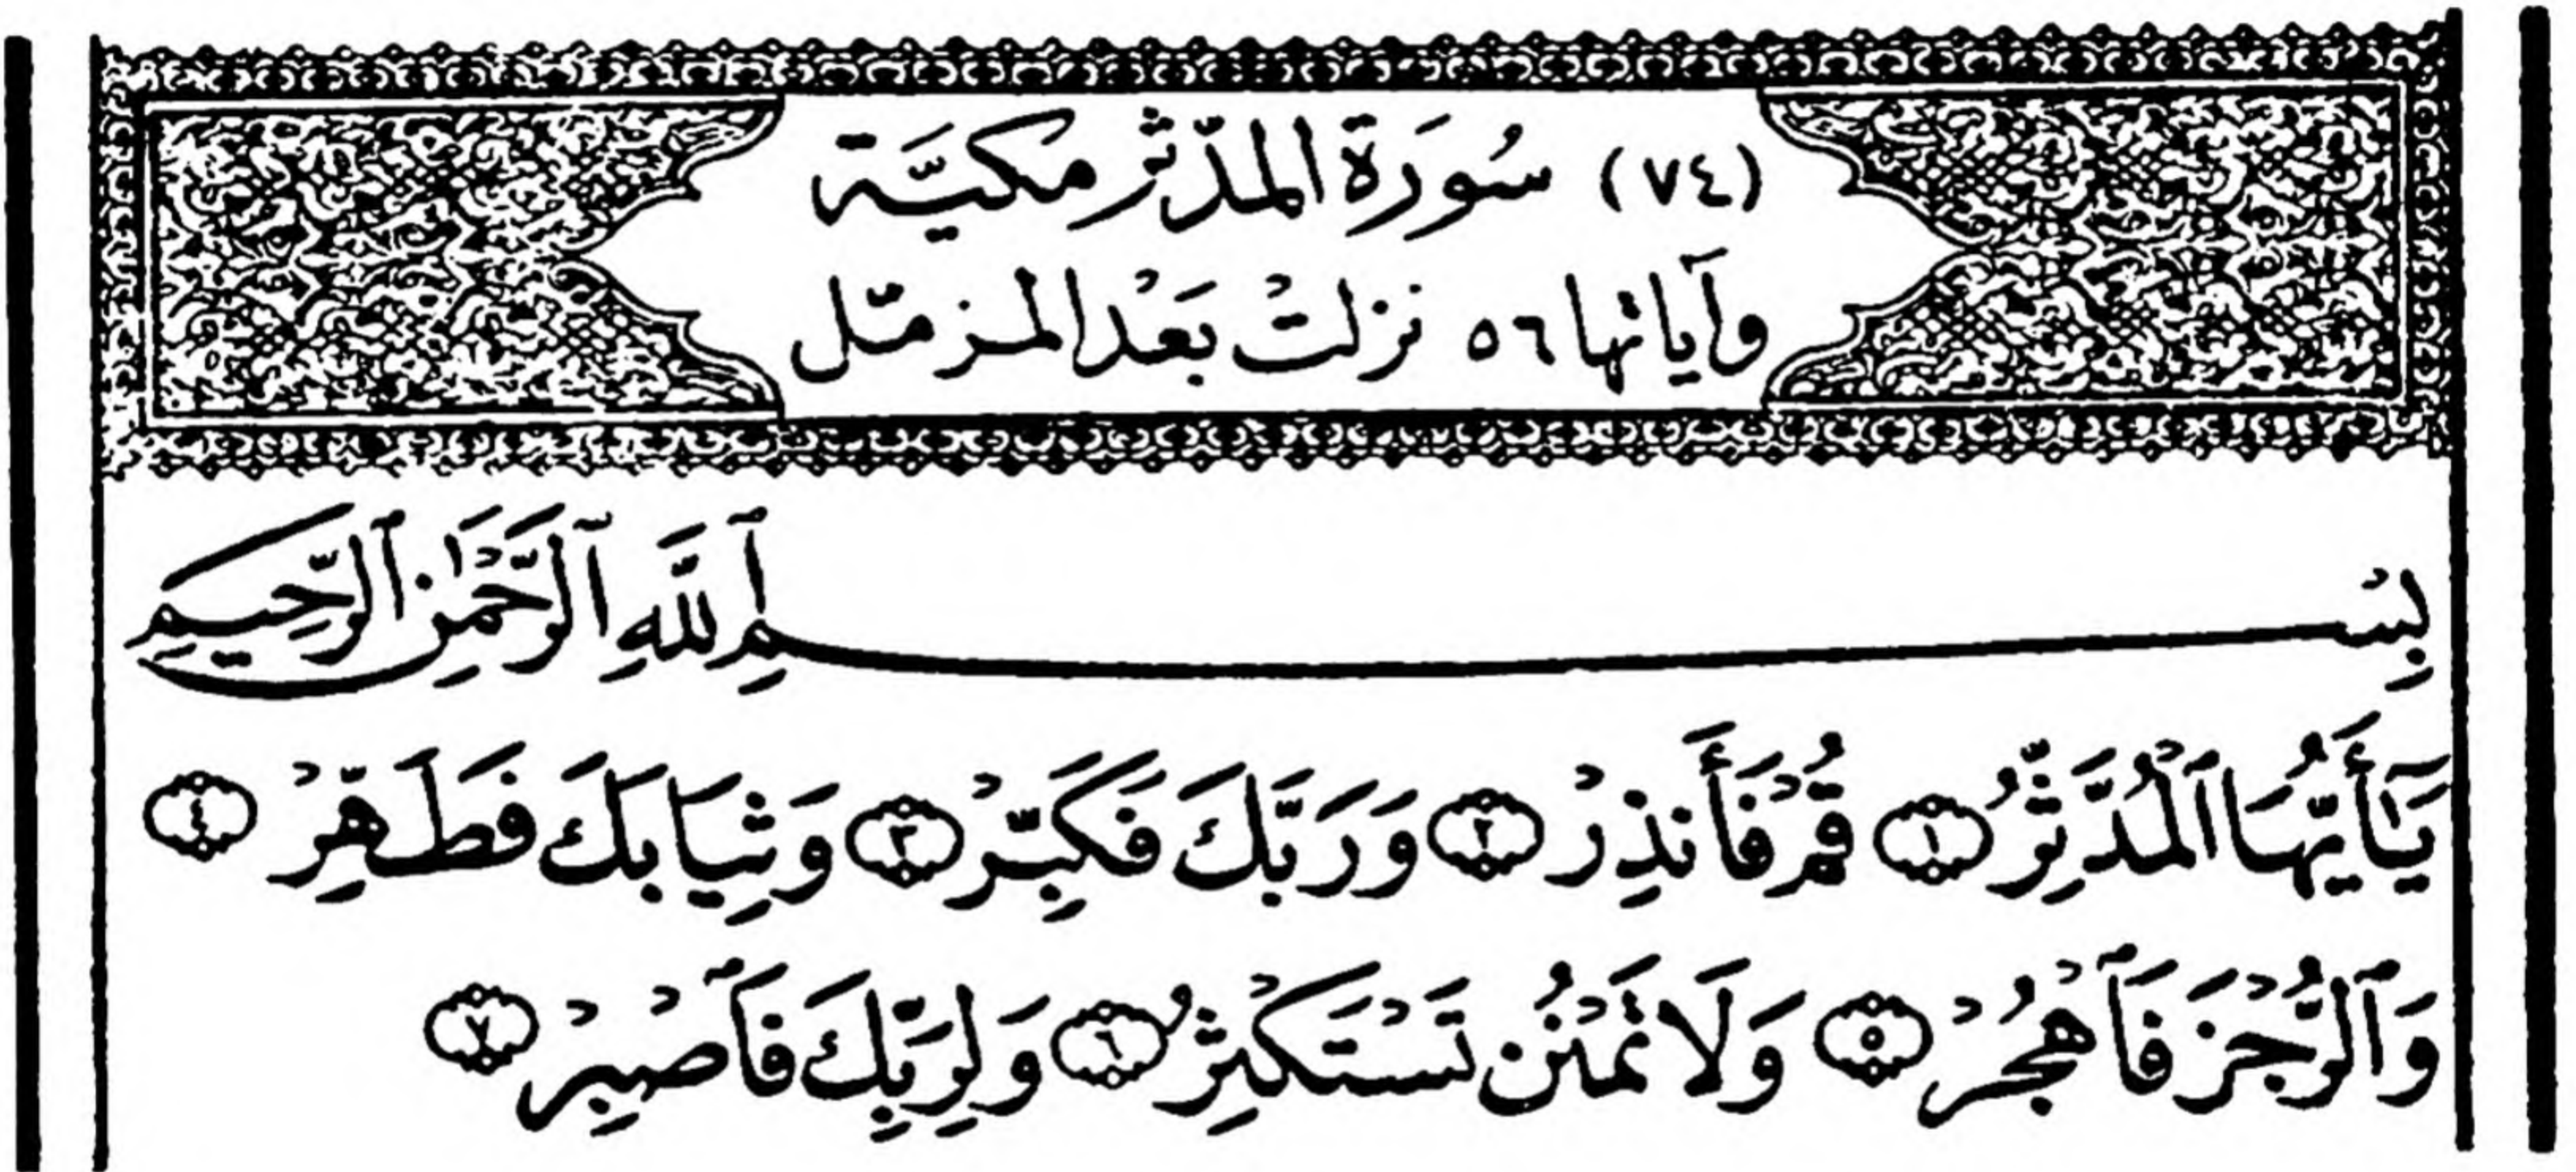 (٧٤) سُورَة المدّثر مكيَّة
وآياتها ٥٦ نزلتْ بَعْد المزمّل
بِسْمِ ٱللَّهِ ٱلرَّحْمَٰنِ ٱلرَّحِيمِ
يَٰٓأَيُّهَا ٱلْمُدَّثِّرُ ١ قُمْ فَأَنذِرْ ٢ وَرَبَّكَ فَكَبِّرْ ٣ وَثِيَابَكَ فَطَهِّرْ ٤
وَٱلرُّجْزَ فَٱهْجُرْ ٥ وَلَا تَمْنُن تَسْتَكْثِرُ ٦ وَلِرَبِّكَ فَٱصْبِرْ ٧